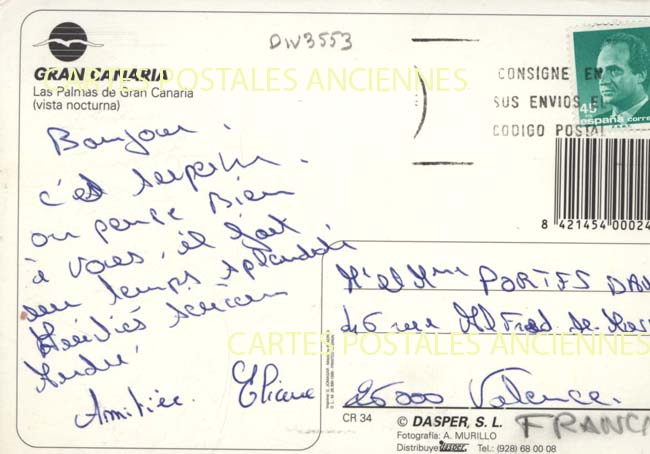 DIV3553
GRAN CANARIA
Las Palmas de Gran Canaria
(vista nocturna)
CARTES POSTALES ANCIENNES
CONSIGNE EN
SUS ENVIOS EL
CODIGO POSTAL
45
españa correo
8 421454 00024
Bonjour.
c'est superbe.
on pense Bien
à vous, il fait
un temps splendide
Amitiés
André,
Amitiés. Eliane
Mr et Mme PORTES DAN
46 rue Alfred de
CARTES POSTALES ANCIENNES
26000 Valence.
CR 34
© DASPER, S. L.
FRANC
Fotografía: A. MURILLO
Distribuye DASPER Tel.: (928) 68 00 08